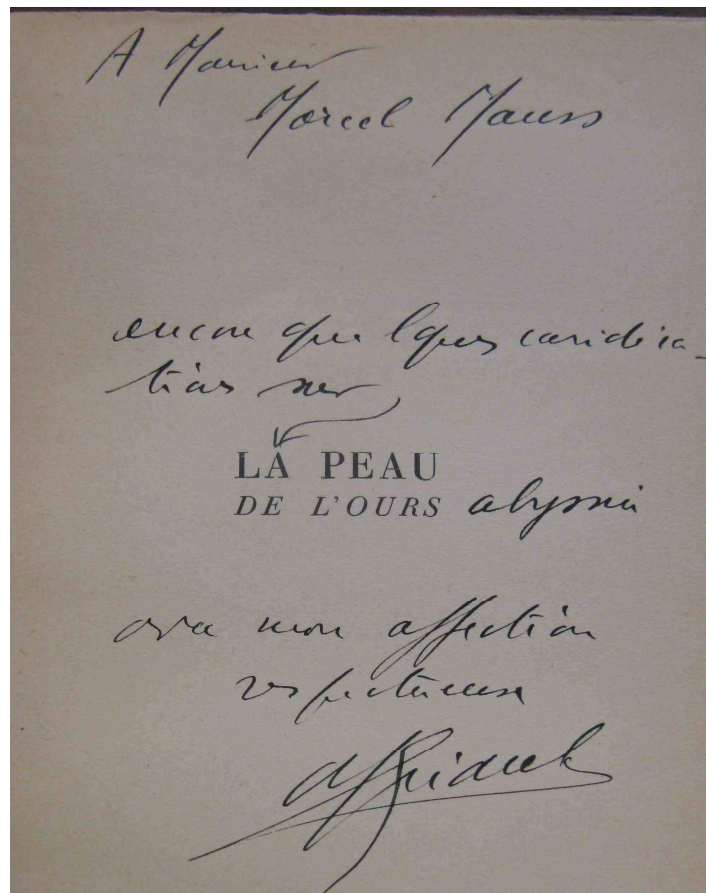 A Monsieur
Marcel Mauss
encore quelques considéra-
tions sur
LA PEAU
DE L'OURS abyssin
avec mon affection
respectueuse